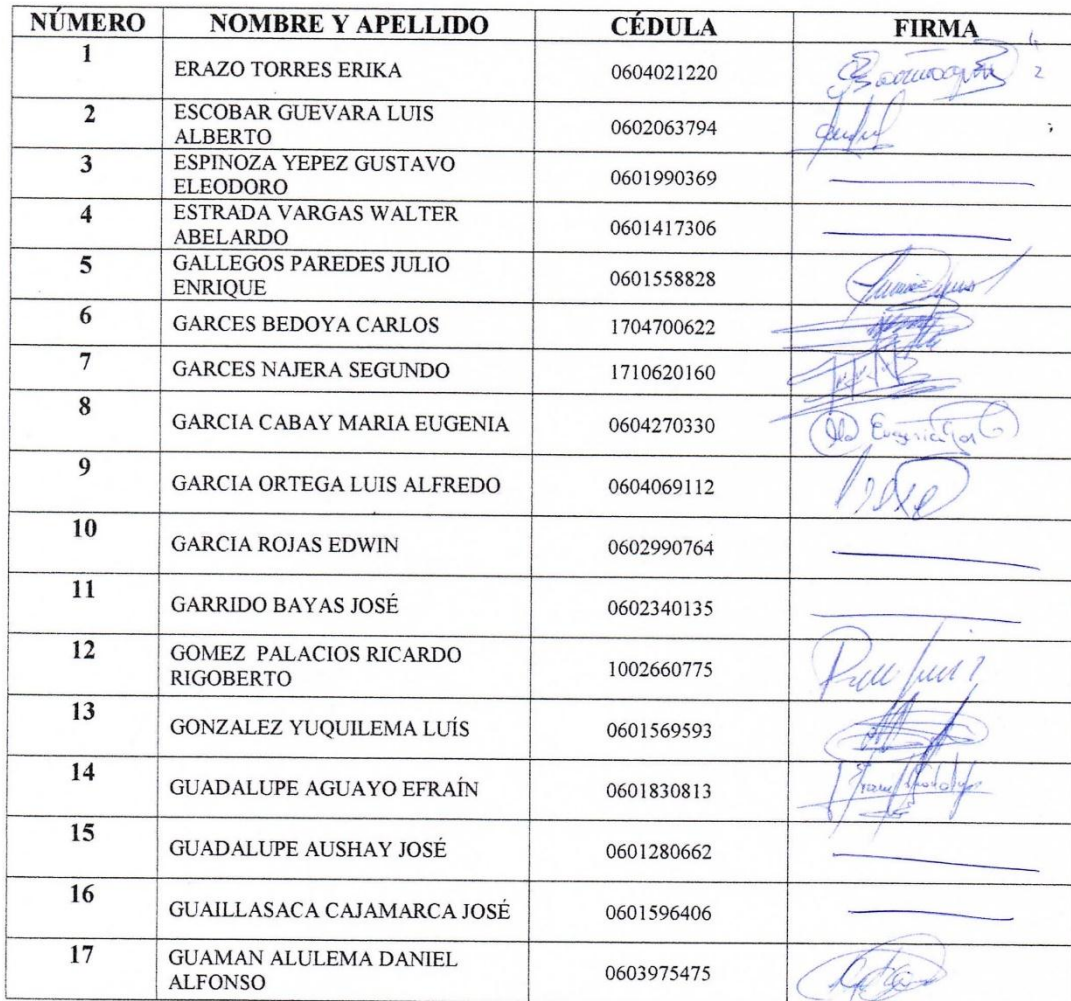 NÚMERO NOMBRE Y APELLIDO CÉDULA FIRMA
1 ERAZO TORRES ERIKA 0604021220
2 ESCOBAR GUEVARA LUIS
ALBERTO 0602063794
3 ESPINOZA YEPEZ GUSTAVO
ELEODORO 0601990369
4 ESTRADA VARGAS WALTER
ABELARDO 0601417306
5 GALLEGOS PAREDES JULIO
ENRIQUE 0601558828
6 GARCES BEDOYA CARLOS 1704700622
7 GARCES NAJERA SEGUNDO 1710620160
8 GARCIA CABAY MARIA EUGENIA 0604270330
9 GARCIA ORTEGA LUIS ALFREDO 0604069112
10 GARCIA ROJAS EDWIN 0602990764
11 GARRIDO BAYAS JOSÉ 0602340135
12 GOMEZ PALACIOS RICARDO
RIGOBERTO 1002660775
13 GONZALEZ YUQUILEMA LUÍS 0601569593
14 GUADALUPE AGUAYO EFRAÍN 0601830813
15 GUADALUPE AUSHAY JOSÉ 0601280662
16 GUAILLASACA CAJAMARCA JOSÉ 0601596406
17 GUAMAN ALULEMA DANIEL
ALFONSO 0603975475